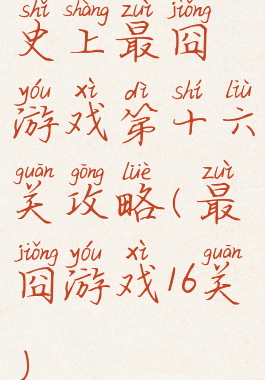 shǐ shàng zuì jiǒng
史上最囧
yóu xì dì shí liù
游戏第十六
guān gōng lüè zuì
关攻略(最
jiǒng yóu xì guān
囧游戏16关
)